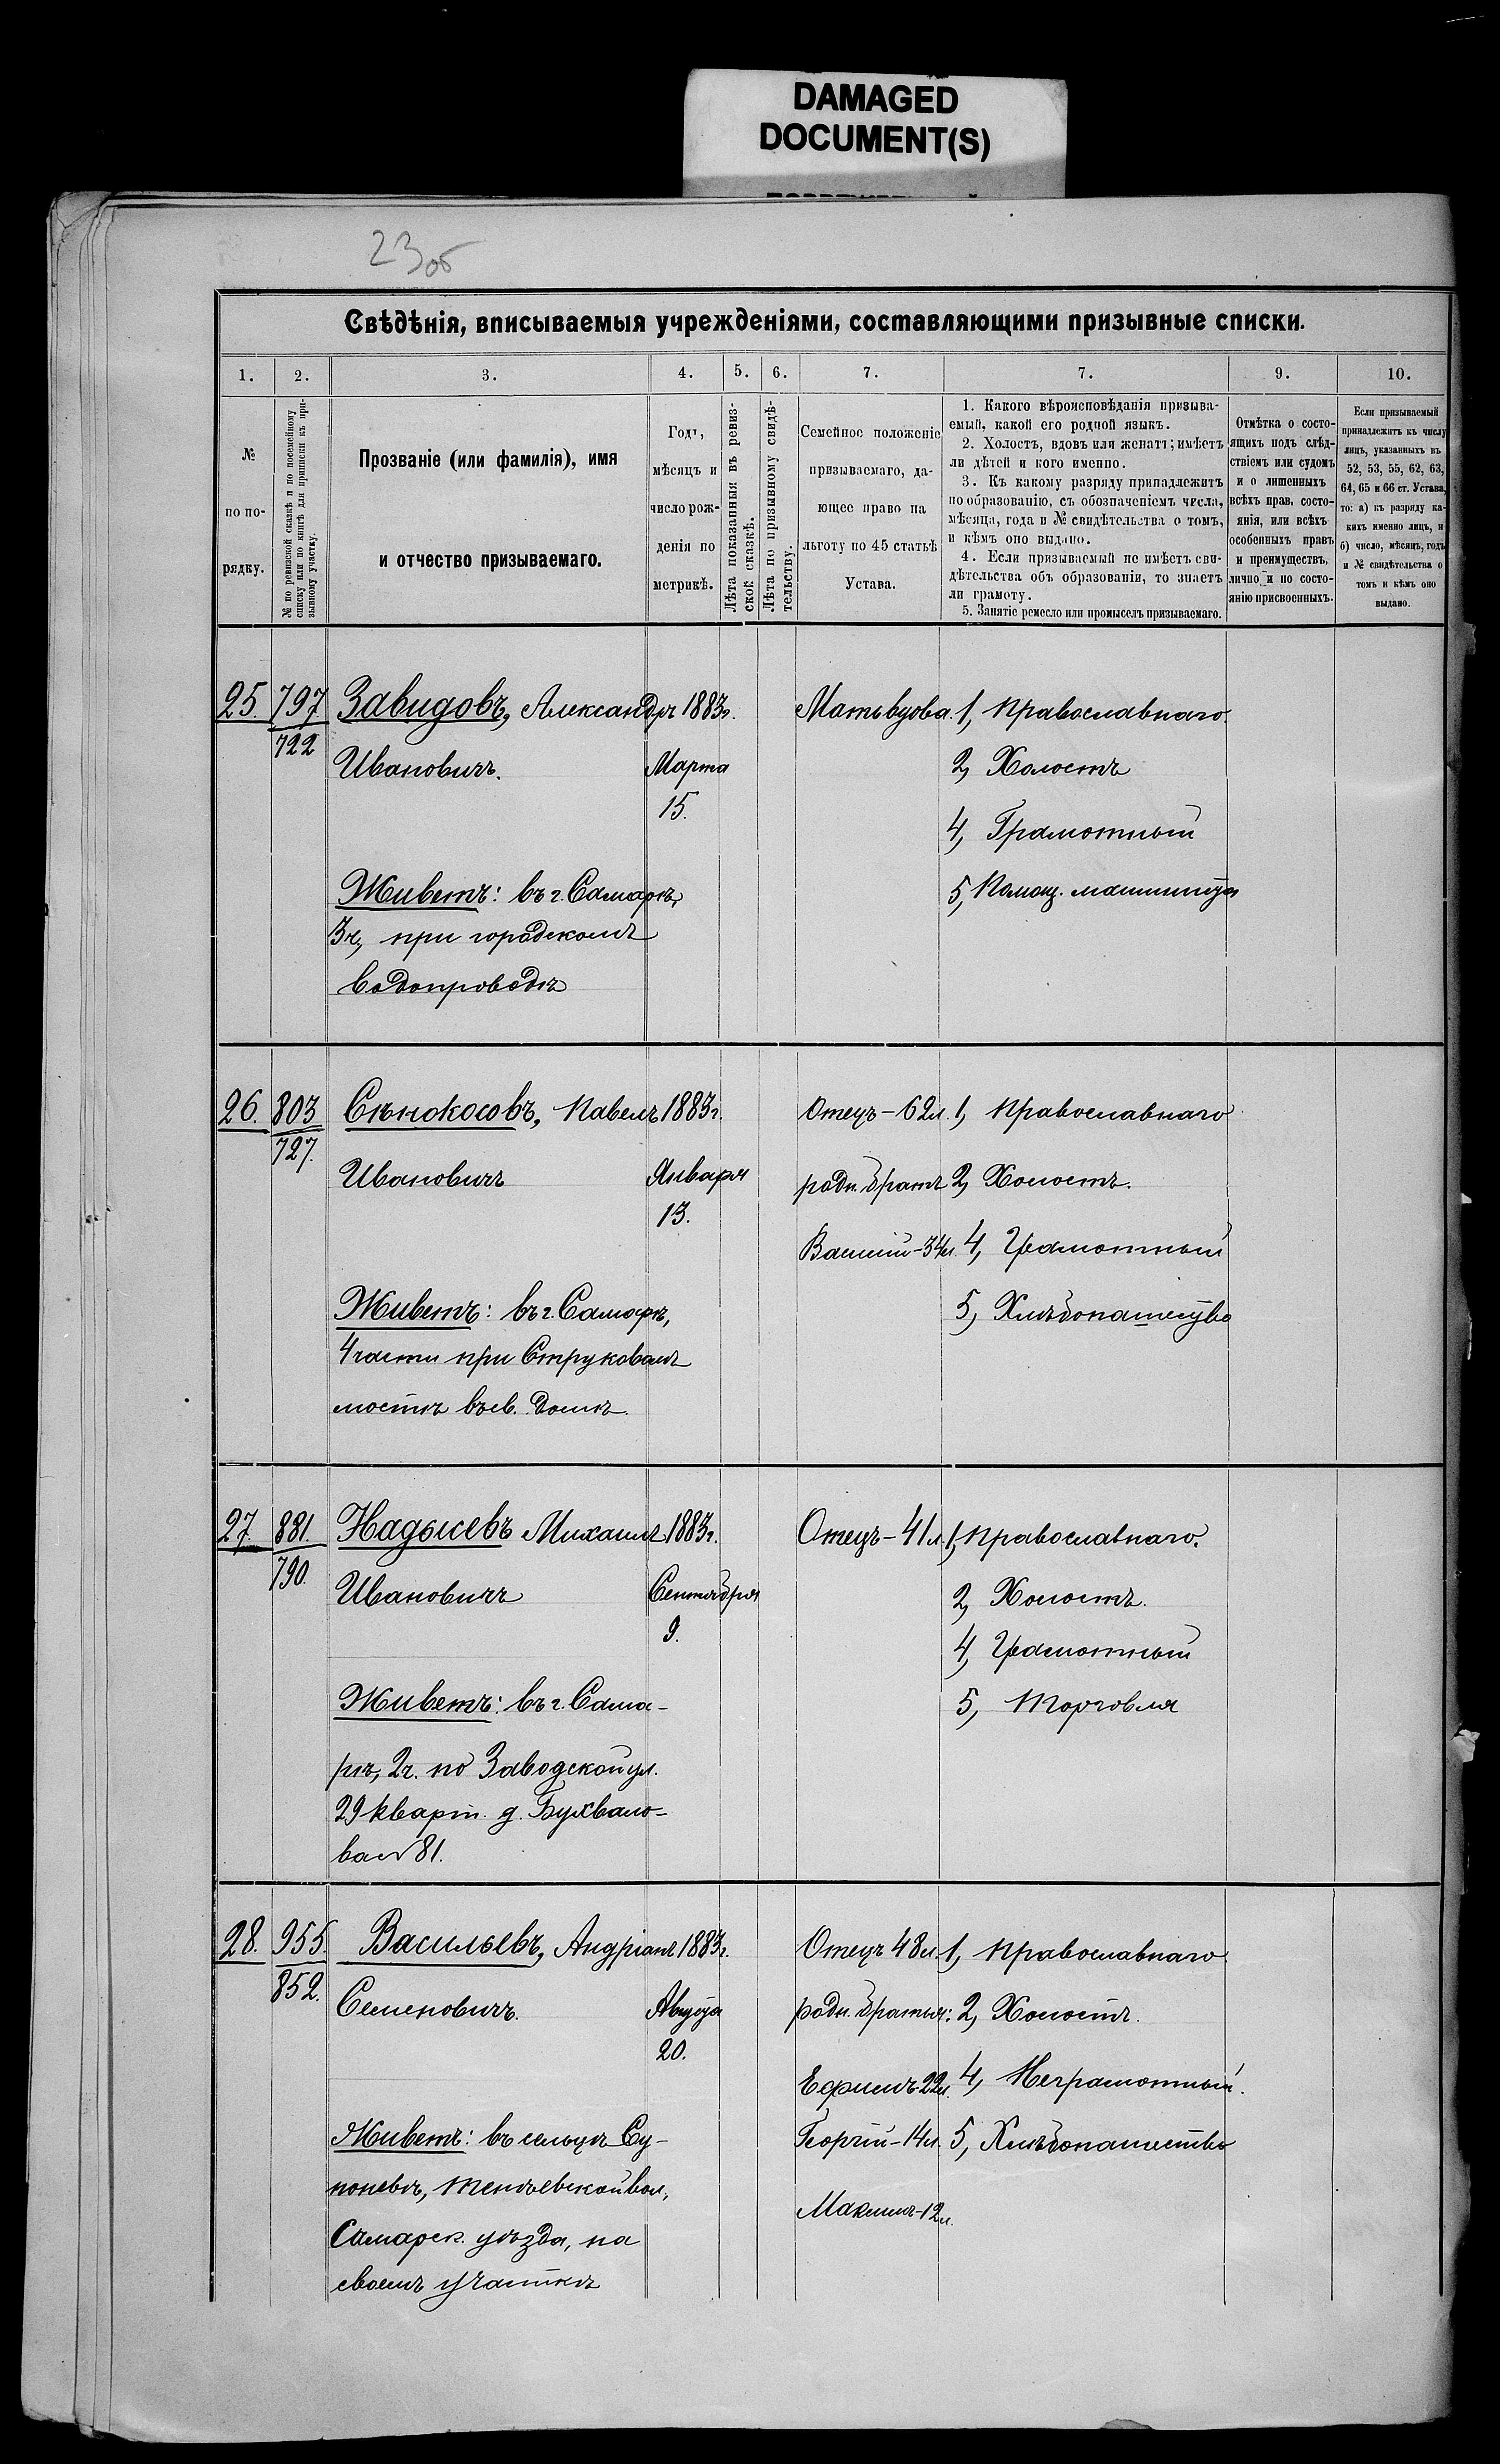 DAMAGED
DOCUMENT(S)
23об
Свѣдѣнія, вписываемыя учрежденіями, составляющими призывные списки.
1. 2. 3. 4. 5. 6. 7. 7. 9. 10.
№
по по-
рядку.
№ по ревизской сказкѣ и по посемейному
списку или по книгѣ для приписки къ при-
зывному участку.
Прозваніе (или фамилія), имя
и отчество призываемаго.
Годъ,
мѣсяцъ и
число рож-
денія по
метрикѣ.
Лѣта показанныя въ ревиз-
ской сказкѣ.
Лѣта по призывному свидѣ-
тельству.
Семейное положеніе
призываемаго, да-
ющее право на
льготу по 45 статьѣ
Устава.
1. Какого вѣроисповѣданія призыва-
емый, какой его родной языкъ.
2. Холостъ, вдовъ или женатъ; имѣетъ
ли дѣтей и кого именно.
3. Къ какому разряду принадлежитъ
по образованію, съ обозначеніемъ числа,
мѣсяца, года и № свидѣтельства о томъ,
и кѣмъ оно выдано.
4. Если призываемый не имѣетъ сви-
дѣтельства объ образованіи, то знаетъ
ли грамоту.
5. Занятіе ремесло или промыселъ призываемаго.
Отмѣтка о состо-
ящихъ подъ слѣд-
ствіемъ или судомъ
и о лишенныхъ
всѣхъ прав, состо-
янія, или всѣхъ
особенныхъ правъ
и преимуществъ,
лично и по состо-
янію присвоенныхъ.
Если призываемый
принадлежитъ къ числу
лицъ, указанныхъ въ
52, 53, 55, 62, 63,
64, 65 и 66 ст. Устава,
то: а) къ разряду ка-
кихъ именно лицъ, и
б) число, мѣсяцъ, годъ
и № свидѣтельства о
томъ и кѣмъ оно
выдано.
25. 797. Завидовъ, Александръ 1883г. Мать вдова. 1, Православнаго.
722
Ивановичъ. Марта 2, Холостъ
15.
4, Грамотный
Живетъ: въ г. Самарѣ, 5, Помощ. машиниста
3ч, при городскомъ
водопроводѣ
26. 803 Сѣнокосовъ, Павелъ 1883г. Отецъ-62л. 1, Православнаго
727.
Ивановичъ Января родн. братъ 2, Холостъ.
13.
Василій-34л. 4, Грамотный
Живетъ: въ г. Самарѣ, 5, Хлѣбопашество
4 части при Струковомъ
мостѣ въ св. домѣ.
27. 881. Надысевъ Михаилъ 1883г. Отецъ-41л. 1, Православнаго.
790.
Ивановичъ Сентября 2, Холостъ.
9.
4, Грамотный
Живетъ: въ г. Сама- 5, Торговля
рѣ, 2ч. по Заводской ул.
29 кварт. д. Бухвало-
ва №81.
28. 955. Васильевъ, Андріанъ 1883г. Отецъ 48л. 1, Православнаго.
852.
Семеновичъ. Августа родн. братья: 2, Холостъ.
20.
Ефимъ-22л. 4, Неграмотный.
Живетъ: въ сельцѣ Су- Георгій-14л. 5, Хлѣбопашество
поневѣ, вол.,
Максимъ-12л.
Самарск. уѣзда, на
своемъ участкѣ